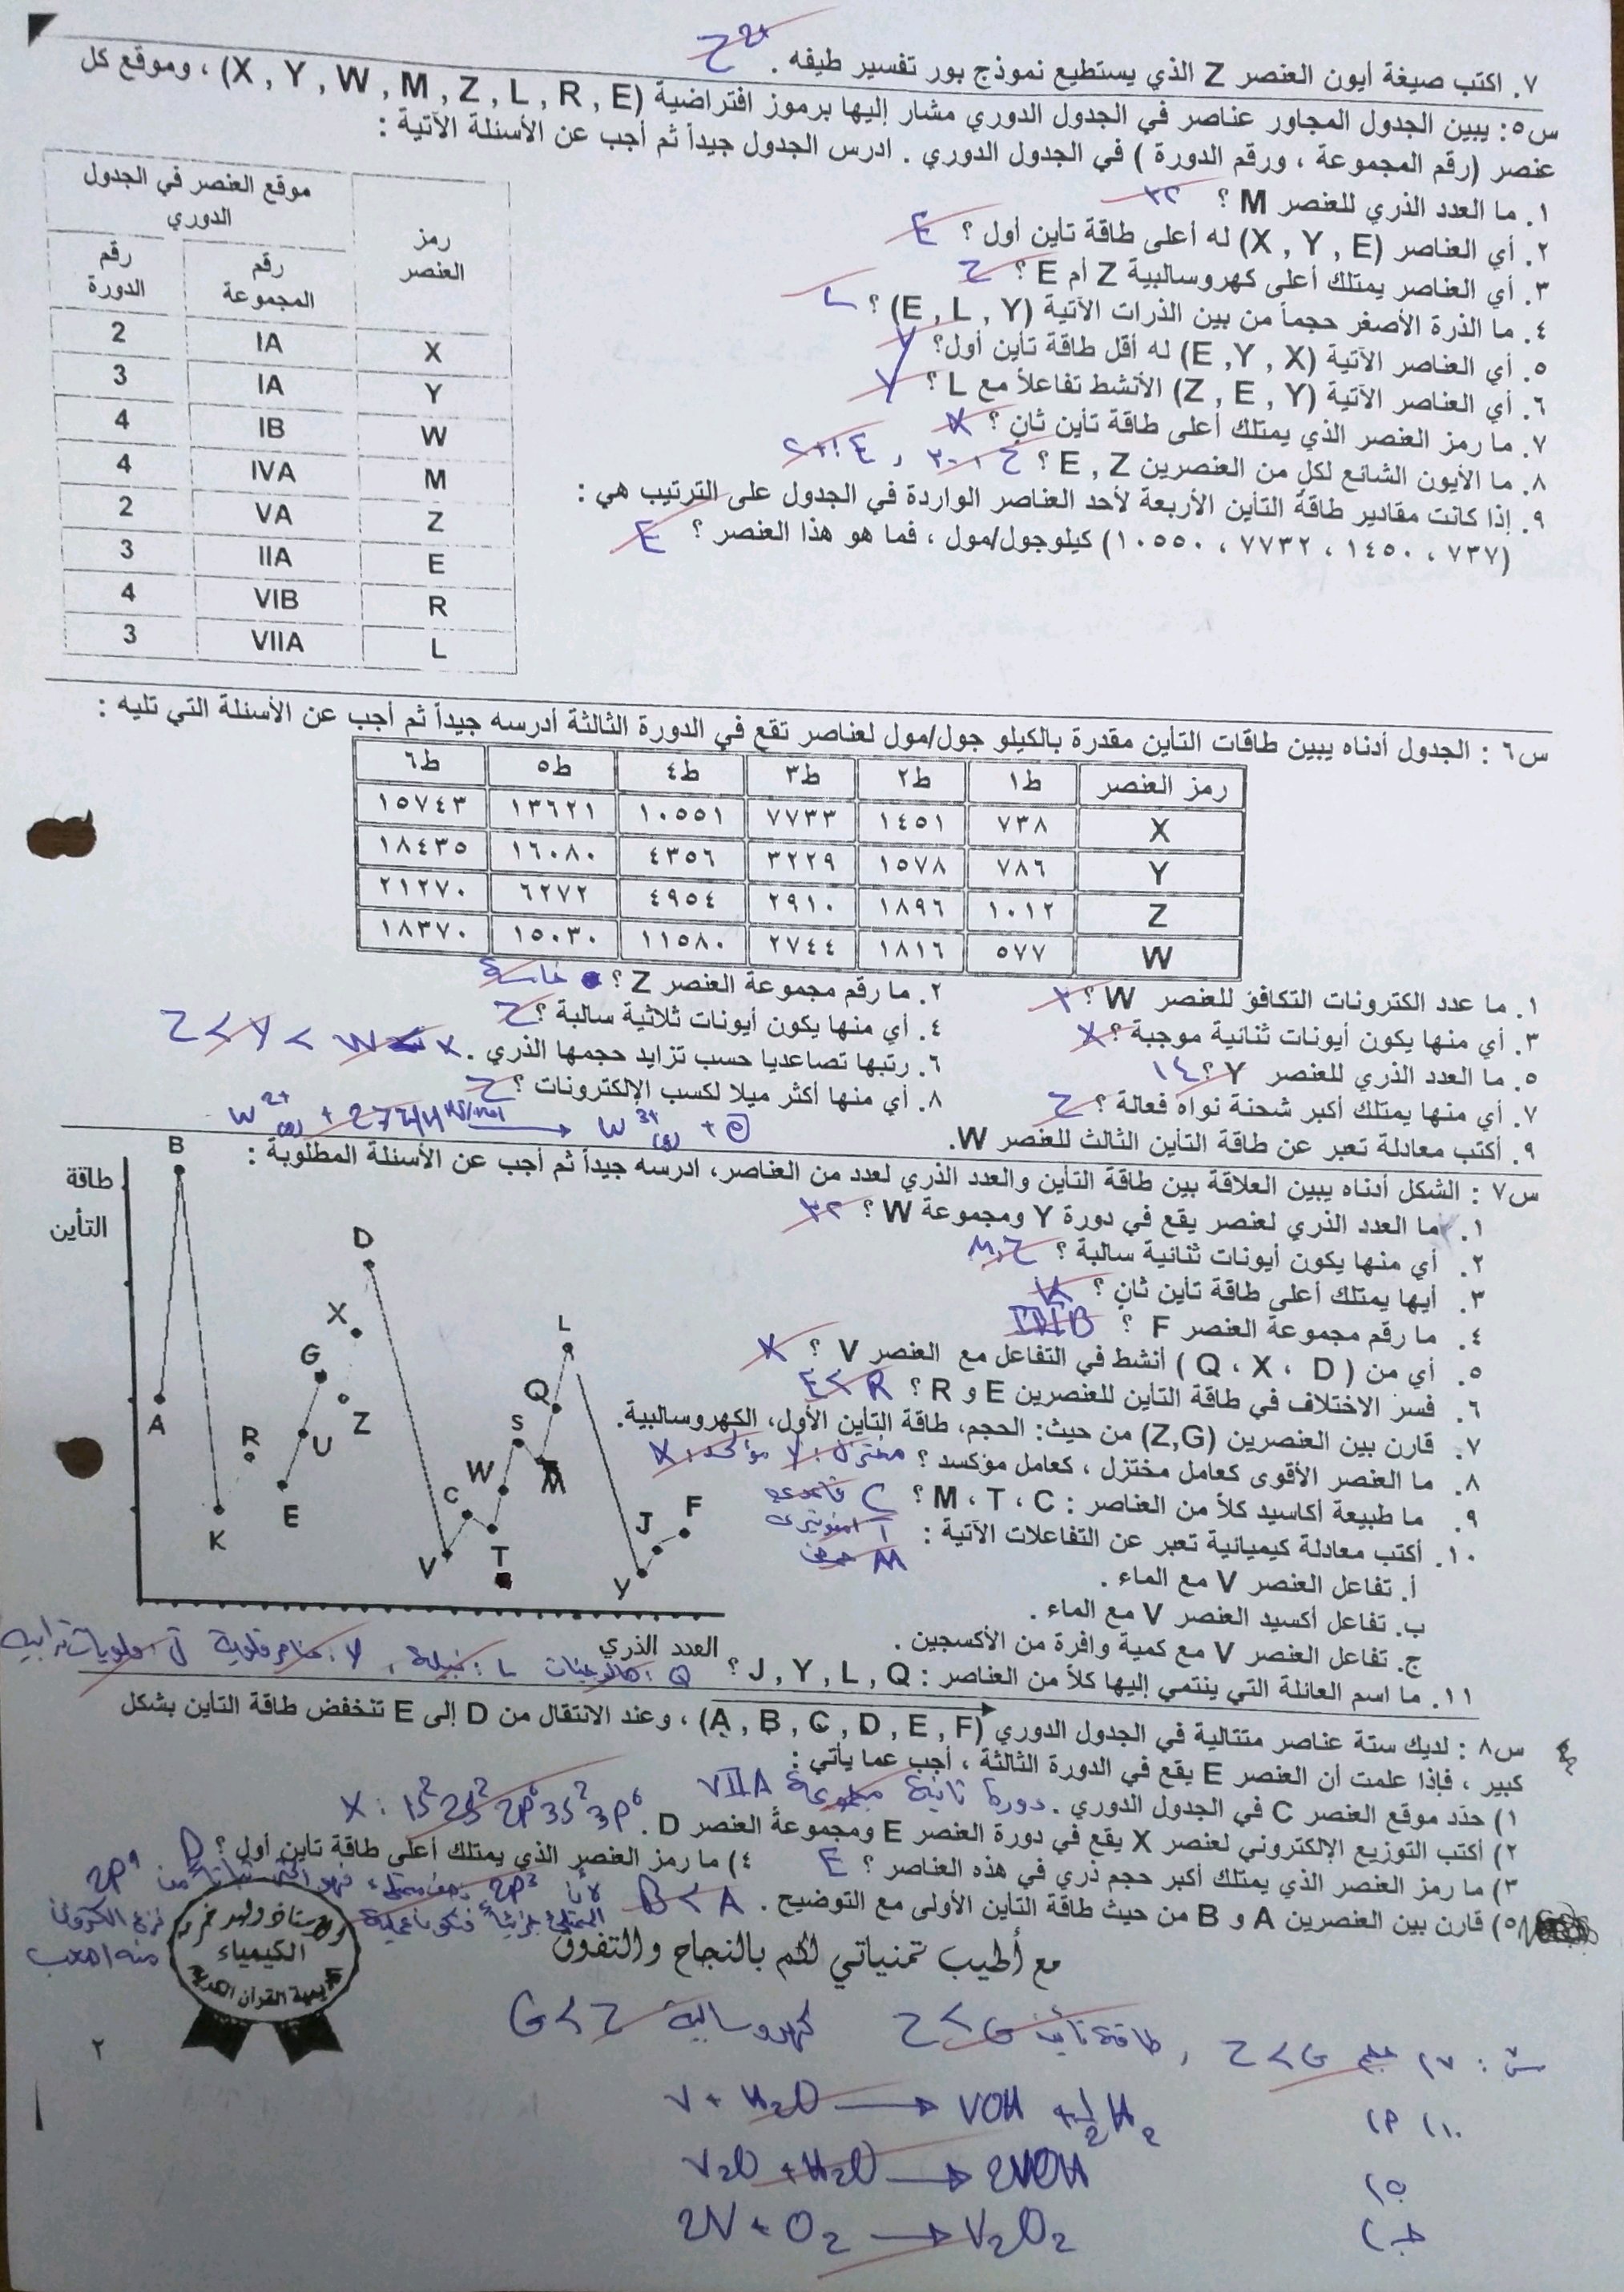 ٧. اكتب صيغة أيون العنصر Z الذي يستطيع نموذج بور تفسير طيفه . Z²⁺
س٥: يبين الجدول المجاور عناصر في الجدول الدوري مشار إليها برموز افتراضية (X , Y , W , M , Z , L , R , E) ، وموقع كل
عنصر (رقم المجموعة ، ورقم الدورة ) في الجدول الدوري . ادرس الجدول جيداً ثم أجب عن الأسئلة الآتية :
١. ما العدد الذري للعنصر M ؟ ٣٢
٢. أي العناصر (X , Y , E) له أعلى طاقة تأين أول ؟ E
٣. أي العناصر يمتلك أعلى كهروسالبية Z أم E ؟ Z
٤. ما الذرة الأصغر حجماً من بين الذرات الآتية (E , L , Y) ؟ L
٥. أي العناصر الآتية (E ,Y , X) له أقل طاقة تأين أول؟ Y
٦. أي العناصر الآتية (Z , E , Y) الأنشط تفاعلاً مع L ؟ Y
٧. ما رمز العنصر الذي يمتلك أعلى طاقة تأين ثانٍ ؟ X
٨. ما الأيون الشائع لكل من العنصرين E , Z ؟ Z : -٣ , E : +٢
٩. إذا كانت مقادير طاقة التأين الأربعة لأحد العناصر الواردة في الجدول على الترتيب هي :
(٧٣٧ ، ١٤٥٠ ، ٧٧٣٢ ، ١٠٥٥٠) كيلوجول/مول ، فما هو هذا العنصر ؟ E
رمز العنصر موقع العنصر في الجدول الدوري
رقم المجموعة رقم الدورة
X IA 2
Y IA 3
W IB 4
M IVA 4
Z VA 2
E IIA 3
R VIB 4
L VIIA 3
س٦ : الجدول أدناه يبين طاقات التأين مقدرة بالكيلو جول/مول لعناصر تقع في الدورة الثالثة أدرسه جيداً ثم أجب عن الأسئلة التي تليه :
رمز العنصر ط١ ط٢ ط٣ ط٤ ط٥ ط٦
X ٧٣٨ ١٤٥١ ٧٧٣٣ ١٠٥٥١ ١٣٦٢١ ١٥٧٤٣
Y ٧٨٦ ١٥٧٨ ٣٢٢٩ ٤٣٥٦ ١٦٠٨٠ ١٨٤٣٥
Z ١٠١٢ ١٨٩٦ ٢٩١٠ ٤٩٥٤ ٦٢٧٢ ٢١٢٧٠
W ٥٧٧ ١٨١٦ ٢٧٤٤ ١١٥٨٠ ١٥٠٣٠ ١٨٣٧٠
١. ما عدد الكترونات التكافؤ للعنصر W ؟ ٣ ٢. ما رقم مجموعة العنصر Z ؟ خامسة
٣. أي منها يكون أيونات ثنائية موجبة ؟ X ٤. أي منها يكون أيونات ثلاثية سالبة ؟ Z
٥. ما العدد الذري للعنصر Y ؟ ١٤ ٦. رتبها تصاعديا حسب تزايد حجمها الذري . Z < Y < W < X
٧. أي منها يمتلك أكبر شحنة نواة فعالة ؟ Z ٨. أي منها أكثر ميلا لكسب الإلكترونات ؟ Z
٩. أكتب معادلة تعبر عن طاقة التأين الثالث للعنصر W. W²⁺(g) + 2744 KJ/mol → W³⁺(g) + e
س٧ : الشكل أدناه يبين العلاقة بين طاقة التأين والعدد الذري لعدد من العناصر، ادرسه جيداً ثم أجب عن الأسئلة المطلوبة :
١. ما العدد الذري لعنصر يقع في دورة Y ومجموعة W ؟ ٣٢
٢. أي منها يكون أيونات ثنائية سالبة ؟ M,Z
٣. أيها يمتلك أعلى طاقة تأين ثانٍ ؟ K
٤. ما رقم مجموعة العنصر F ؟ IIIB
٥. أي من ( Q ، X ، D ) أنشط في التفاعل مع العنصر V ؟ X
٦. فسر الاختلاف في طاقة التأين للعنصرين E و R ؟ E < R
٧. قارن بين العنصرين (Z,G) من حيث: الحجم، طاقة التأين الأول، الكهروسالبية.
٨. ما العنصر الأقوى كعامل مختزل ، كعامل مؤكسد ؟ مختزل : Y مؤكسد : X
٩. ما طبيعة أكاسيد كلاً من العناصر : M ، T ، C ؟ C قاعدي
T امفوتيري
M حمضي
١٠. أكتب معادلة كيميائية تعبر عن التفاعلات الآتية :
أ. تفاعل العنصر V مع الماء .
ب. تفاعل أكسيد العنصر V مع الماء .
ج. تفاعل العنصر V مع كمية وافرة من الأكسجين .
١١. ما اسم العائلة التي ينتمي إليها كلاً من العناصر : J , Y , L , Q ؟ Q : هالوجينات L : نبيلة , Y : عناصر قلوية J : قلويات ترابية
طاقة
التأين
B
D
X
G
L
A
Z
Q
R
U
S
W
M
E
C
K
J
F
T
V
Y
العدد الذري
س٨ : لديك ستة عناصر متتالية في الجدول الدوري (A , B , C , D , E , F) ، وعند الانتقال من D إلى E تنخفض طاقة التأين بشكل
كبير ، فإذا علمت أن العنصر E يقع في الدورة الثالثة ، أجب عما يأتي :
١) حدد موقع العنصر C في الجدول الدوري . دورة ثانية مجموعة VIIA
٢) أكتب التوزيع الإلكتروني لعنصر X يقع في دورة العنصر E ومجموعة العنصر D . X : 1s² 2s² 2p⁶ 3s² 3p⁶
٣) ما رمز العنصر الذي يمتلك أكبر حجم ذري في هذه العناصر ؟ E ٤) ما رمز العنصر الذي يمتلك أعلى طاقة تأين أول ؟ D
٥) قارن بين العنصرين A و B من حيث طاقة التأين الأولى مع التوضيح . B < A
لأن 2p³ نصف ممتلئ، فهو أكثر ثباتاً من 2p⁴
الممتلئ جزئياً فتكون عملية نزع الكترون
منه اصعب
مع أطيب تمنياتي لكم بالنجاح والتفوق
الكيمياء
٢
س٧ : ٧) حجم Z < G , طاقة تأين Z < G كهروسالبية G < Z
١٠) أ) V + H₂O → VOH + ½H₂
ب) V₂O + H₂O → 2VOH
ج) 2V + O₂ → V₂O₂